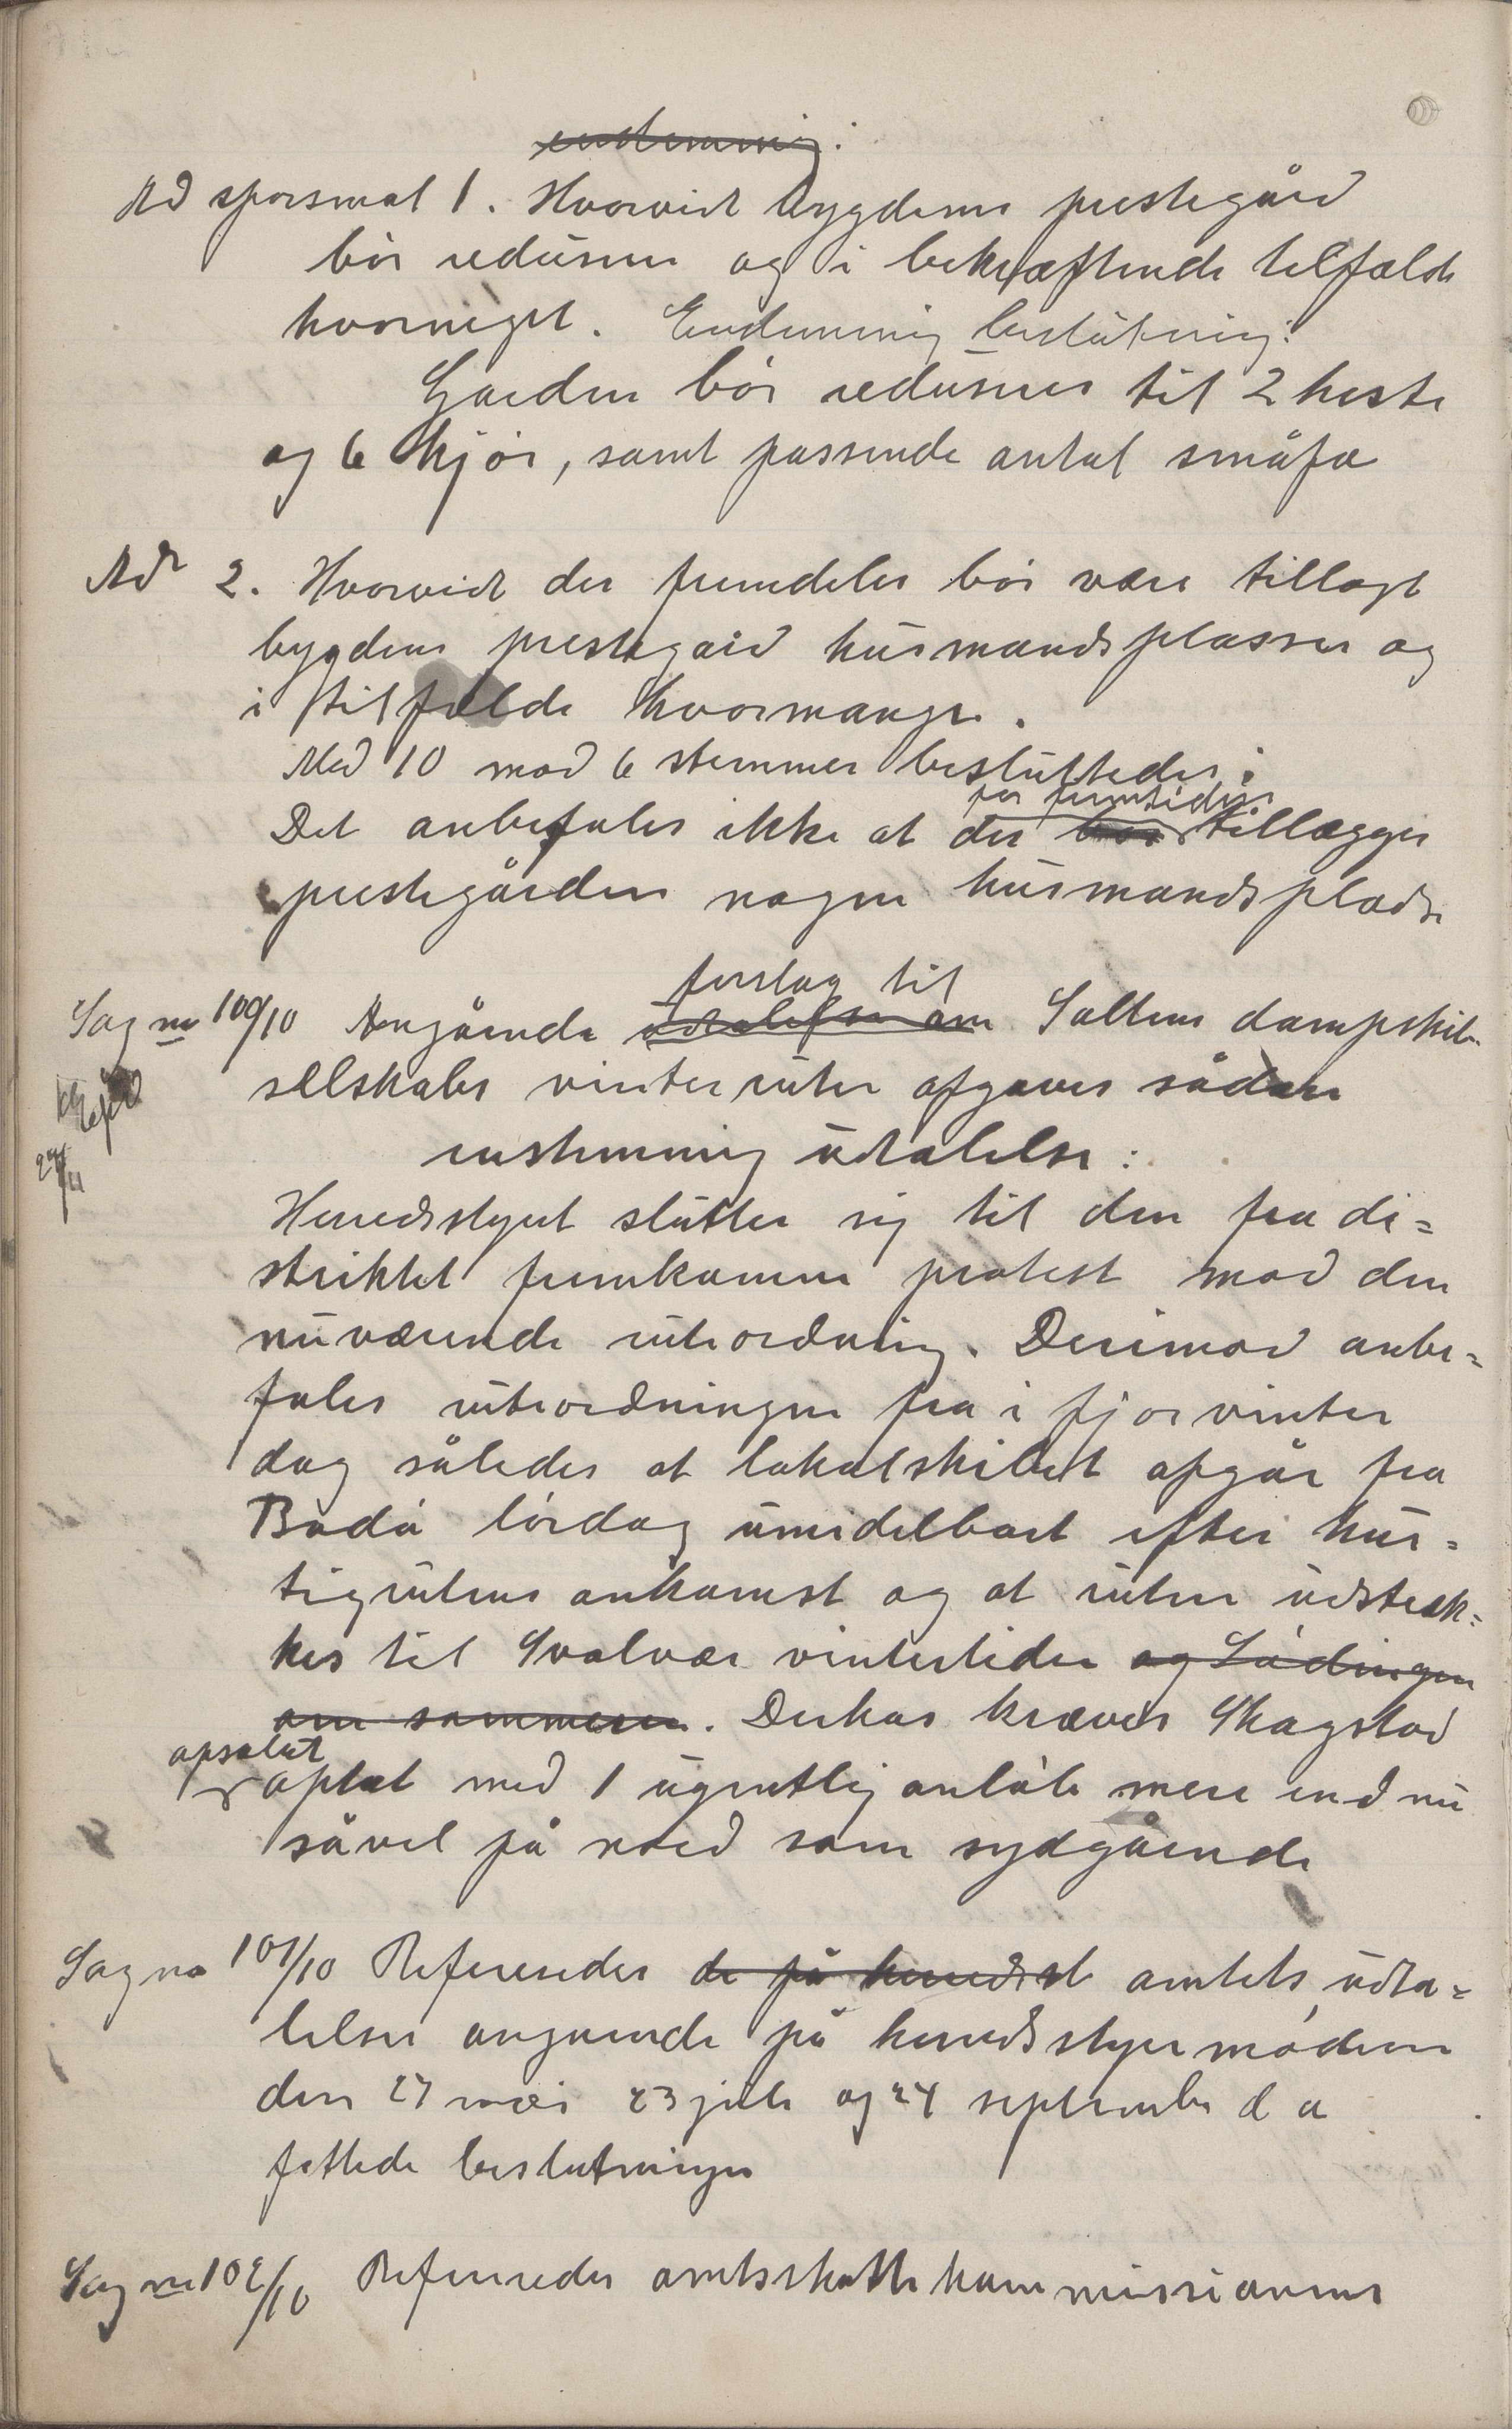 enstemmig:
Ad spørsmal 1. Hvorvidt bygdens prestegård
bør reduseres og i bekræftende tilfælde
hvormeget. Enstemmig beslutning:
Garden bør reduseres til 2 heste
og 6 kjør, samt passende antal småfæ
Ad 2. Hvorvidt der fremdeles bør være tillagt
bygdens prestegård husmandsplasser og
i tilfælde hvormange.
Med 10 mod 6 stemmer besluttedes:
for fremtiden
Det anbefales ikke at der bør tillægges
prestegården nogen husmandsplads
forslag til
Sag no 100/10 Angående udtalelse om Saltens dampskibs
selskabs vinterruter afgaves sådan
enstemmig udtalelse:
27/11
Herredsstyret slutter sig til den fra di=
striktet fremkomne protest mod den
nuværende ruteordning. Derimod anbe=
fales ruteordningen fra i fjor vinter
dog således at lokalskibet afgår fra
Bodø lørdag umidelbart efter hur=
tigrutens ankomst og at ruten udstræk=
kes til Svolvær vintertiden og Lødingen
om sommeren. Derhos kræves Skagstad
absolut
optat med 1 ugentlig anløb mere end nu
såvel på nord som sydgående
Sag no 101/10 Refereredes de på herredsst amtets udta=
lelser angaaende på herredsstyremøderne
den 27 mai 23 juli og 24 september d a
fattede beslutninger
Sag no 102/10 Refereredes amtsskattekommissionens